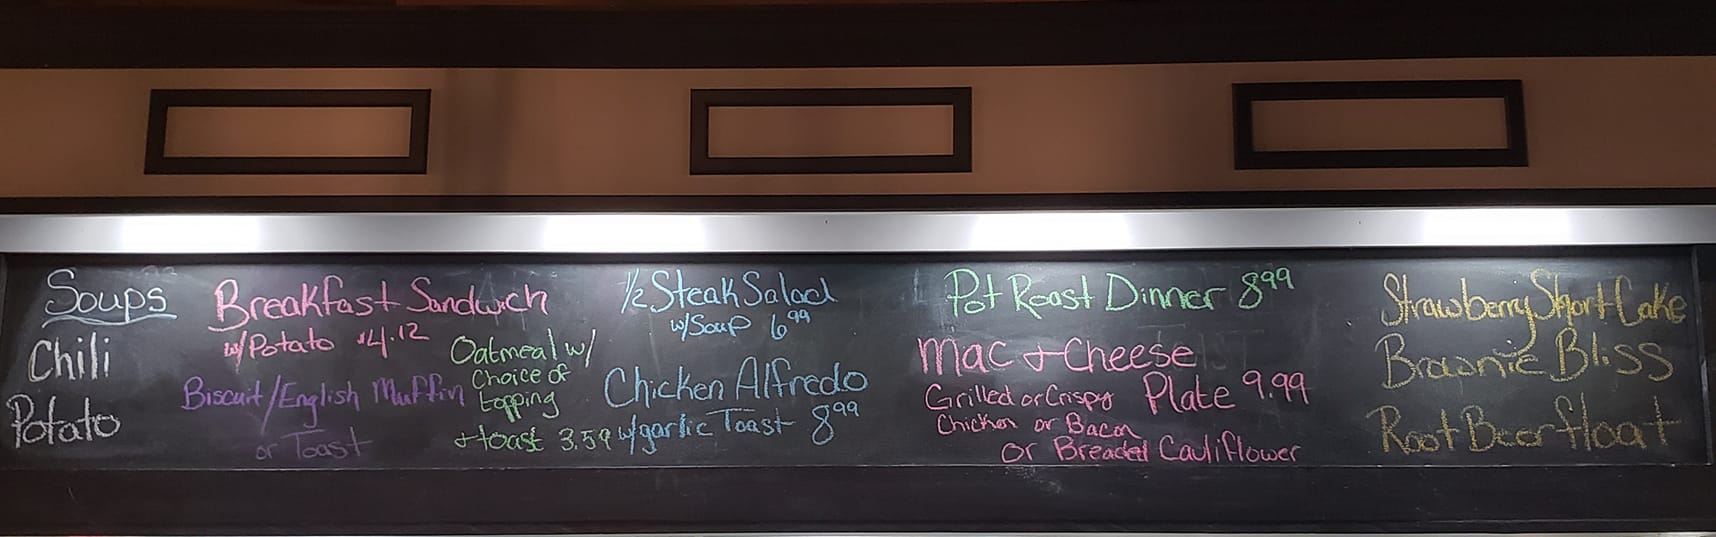 Soups
Chili
Potato
Breakfast Sandwich
w/Potato $4.12
Biscuit/English Muffin
or Toast
Oatmeal w/
Choice of
topping
+ toast 3.59
1/2 Steak Salad
w/Soup 6.99
Chicken Alfredo
w/garlic Toast 8.99
Pot Roast Dinner 8.99
Mac + Cheese
Plate 9.99
Grilled or Crispy
Chicken or Bacon
or Breaded Cauliflower
Strawberry Short Cake
Brownie Bliss
Root Beer float